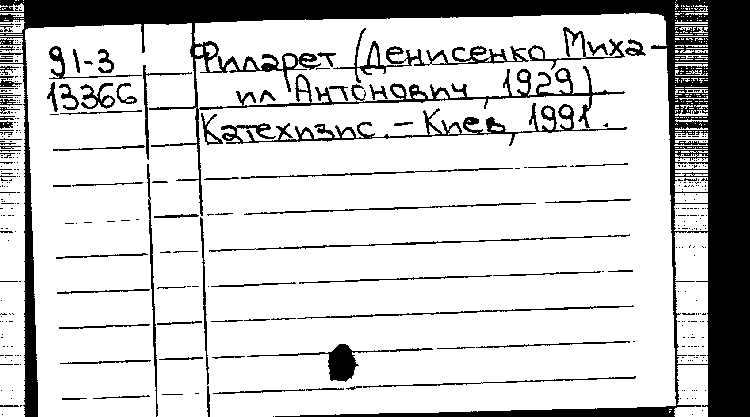 91-3
13366
Филарет (Денисенко, Миха-
ил Антонович, 1929).
Катехизис. - Киев, 1991.